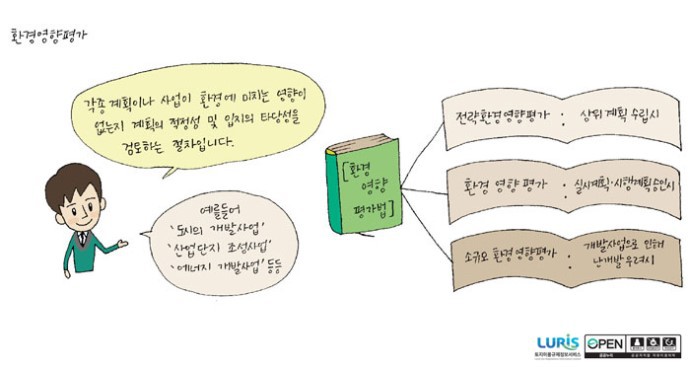 환경영향평가
각종 계획이나 사업이 환경에 미치는 영향이
없는지 계획의 적정성 및 입지의 타당성을
검토하는 절차입니다.
예를들어
'도시의 개발사업'
'산업단지 조성사업'
'에너지 개발사업' 등등
[환경
영향
평가법]
전략환경영향평가 : 상위계획 수립시
환경 영향 평가 : 실시계획·시행계획승인시
소규모 환경영향평가 : 개발사업으로 인해
난개발 우려시
LURIS
토지이용규제정보서비스
OPEN
공공누리